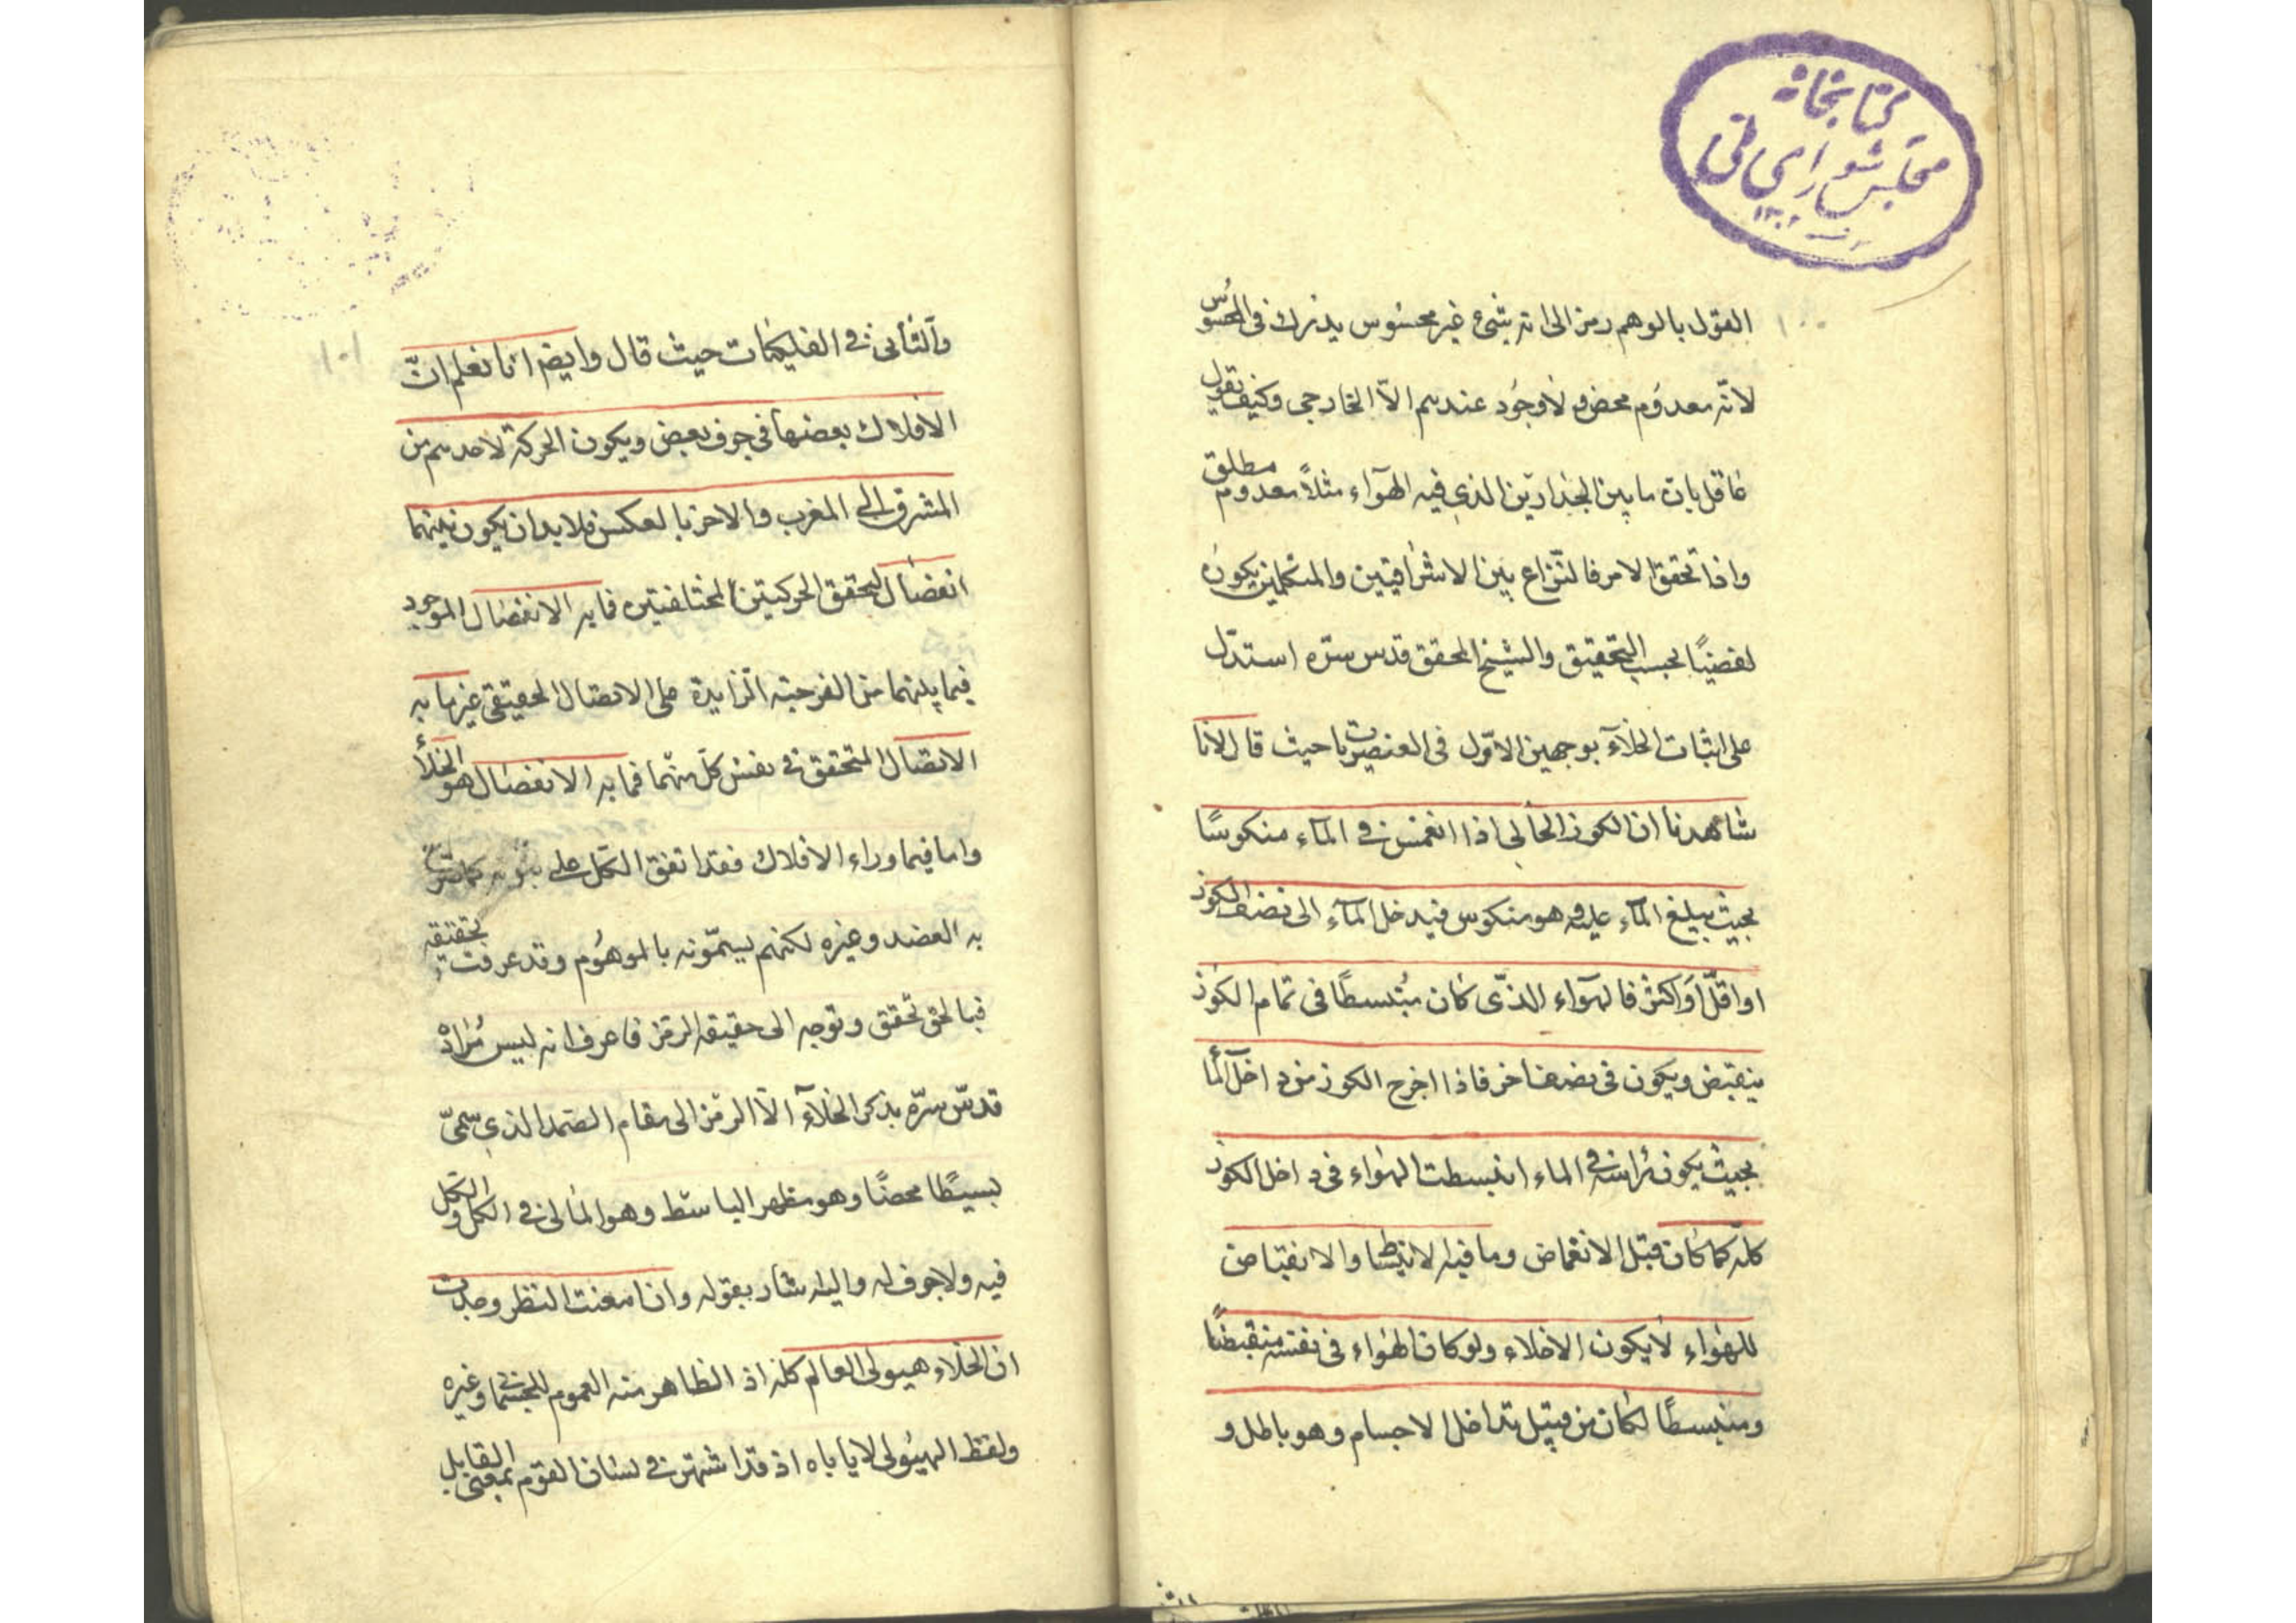 كتابخانه
مجلس شورای ملی
۱۳۰۲
۱۰۰
القول بالوهم رمز الى انه شیء غير محسوس يدرك فى المحسوس
لانّه معدوم محض ولا وجود عندهم الاّ الخارجى وكيف يقول
عاقل بان ما بين الجدارين الذى فيه الهوآء مثلاً معدوم مطلق
واذا تحقق الامر فالنّزاع بين الاشراقيين والمتكلمين يكون
لفضيًا بحسب التحقيق والشيخ المحقق قدس سرّه استدّل
على اثبات الخلآء بوجهين الاوّل فى العنصريات حيث قال لانا
شاهدنا ان الكوز الخالى اذا انغمس فى المآء منكوسًا
بحيث يبلغ المآء عليه وهو منكوس فيدخل المآء الى نصف الكوز
او اقلّ او اكثر فالهوآء الذّى كان مُنبسطًا فى تمام الكوز
ينقبض ويكون فى نصف اخر فاذا اخرج الكوز من داخل المآ
بحيث يكون راسه فى الماء انبسطت الهواء فى داخل الكوز
كلّه كما كان قبل الانغماض وما فيه الانبساط والانقباض
للهواء لا يكون الا خلاء ولو كان الهواء فى نفسه منقبضًا
ومنبسطًا لكان من قبيل تداخل الاجسام وهو باطل و
۱۰۱
والثانى فى الفلكيات حيث قال وايضا انا نعلم انّ
الافلاك بعضها فى جوف بعض ويكون الحركة لاحدهم من
المشرق الى المغرب والاخر بالعكس فلابد ان يكون بينهما
انفصال لتحقق الحركتين المختلفتين فما به الانفصال الموجود
فيما بينهما من الفرجة الزايدة على الاتصال الحقيقى غير ما به
الاتصال المتحقق فى نفس كلّ منهما فما به الانفصال هو الخلاء
واما فيما وراء الافلاك فقد اتفق الكل على
به العضد وغيره لكنهم يسمّونه بالموهوم وقد عرفت تحقيقه
فبالحق تحقق وتوجه الى حقيقة الرمز فاعرف انه ليس مُراده
قدسّ سرّه بذكر الخلآء الاّ الرمز الى مقام الصمد الذى سمىّ
بسيطًا محضًا وهو مظهر الباسط وهو المالى فى الكل والكل
فيه ولا جوف له واليه شار بقوله وان امعنت النظر وجدت
ان الخلاء هيولى العالم كله اذ الظاهر منه العموم للجسمانى وغيره
ولفظ الهيولى لا ياباه اذ قد اشتهر فى لسان القوم بمعنى القابل